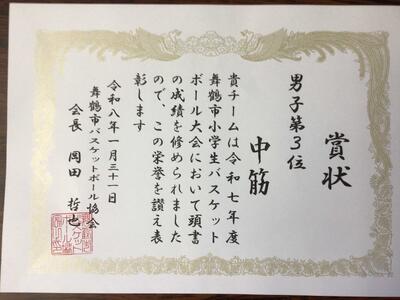 賞状
男子第3位
中筋
貴チームは令和七年度
舞鶴市小学生バスケット
ボール大会において頭書
の成績を修められました
ので、この栄誉を讃え表
彰します
令和八年一月三十一日
舞鶴市バスケットボール協会
会長 岡田 哲也